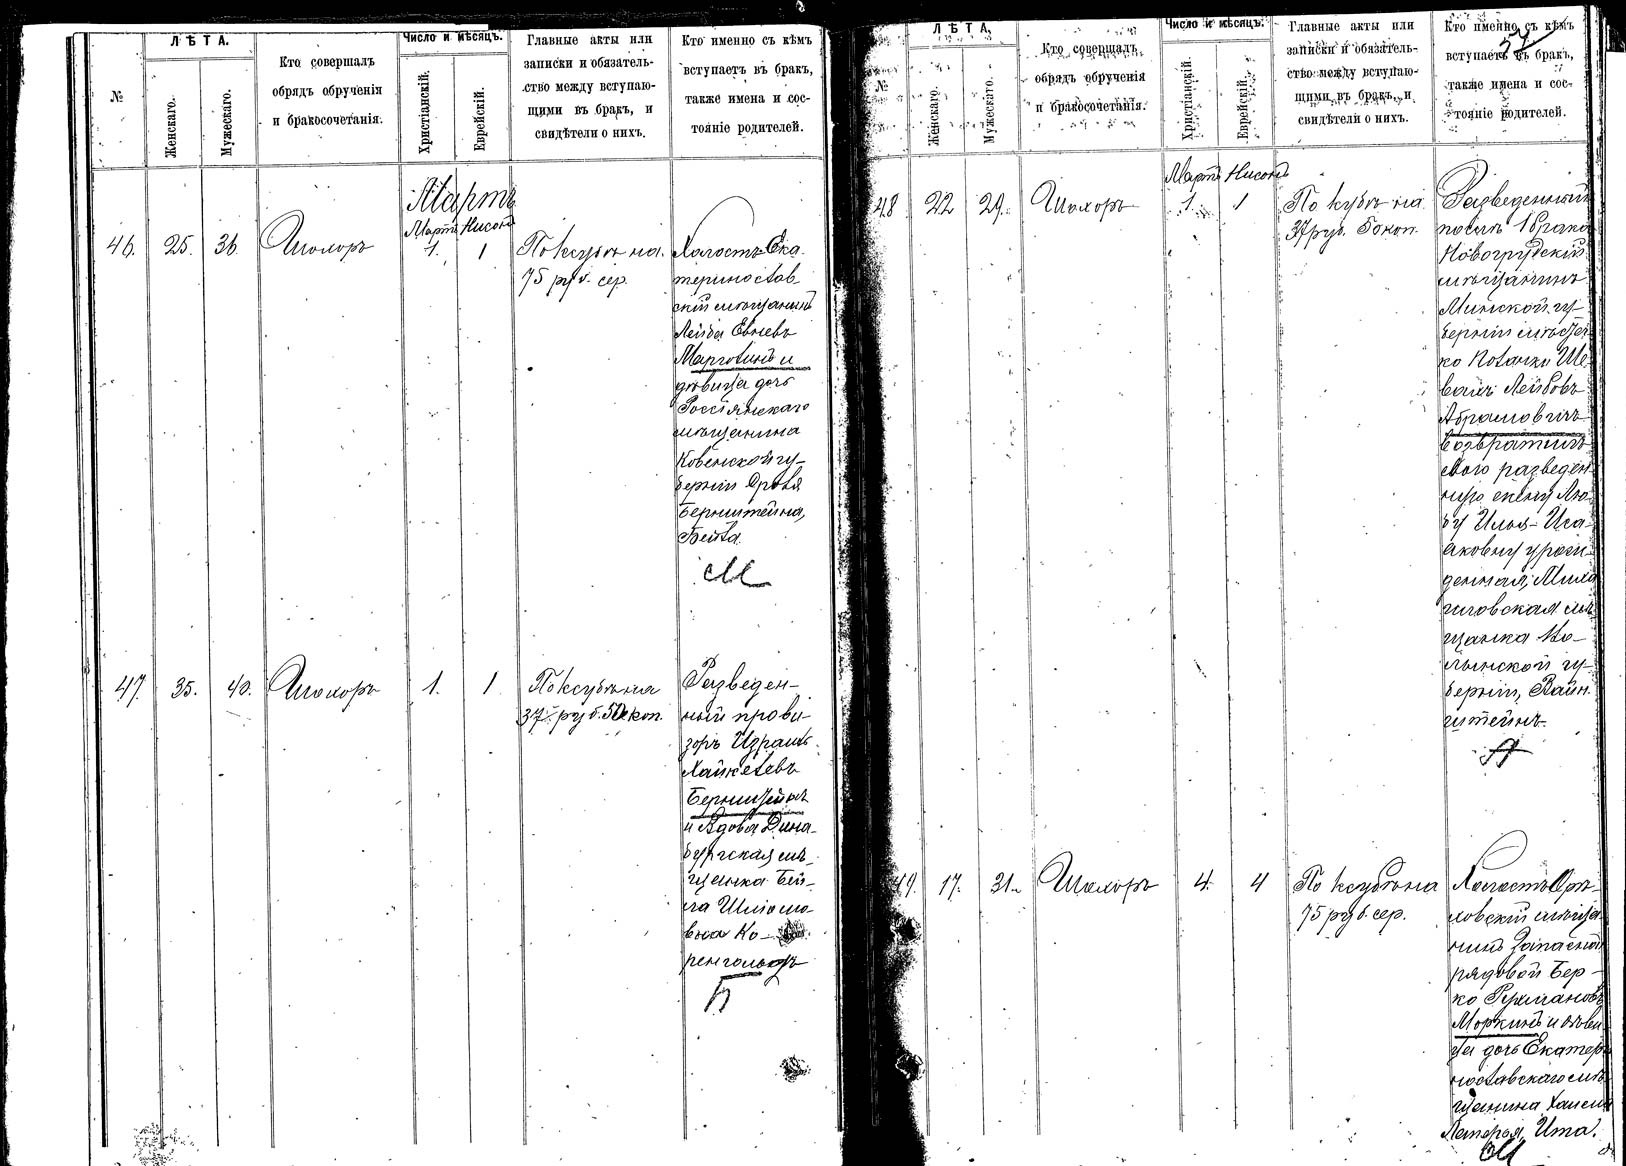 №
ЛѢТА.
Женскаго.
Мужескаго.
Кто совершалъ
обрядъ обрученія
и бракосочетанія.
Число и мѣсяцъ.
Христіанскій.
Еврейскій.
Главные акты или
записки и обязатель-
ство между вступаю-
щими въ бракъ, и
свидѣтели о нихъ.
Кто именно съ кѣмъ
вступаетъ въ бракъ,
также имена и сос-
тояніе родителей.
Мартъ
Мартъ Нисонъ
46. 25. 36. Шохоръ 1. 1
По ксубѣ на
75 руб. сер.
Холостъ Ека
теринослав
скій мѣщанинъ
Лейба
Марголинъ и
дѣвица дочь
Россіянскаго
мѣщанина
Ковенской гу-
берніи
Бернштейна,
Бейла
М
47. 35. 40. Шохоръ 1. 1
По ксубѣ на
37 руб. 50 коп.
Разведен-
ный прови-
зоръ Израиль
Бернштейнъ
и вдова Дина-
бургская мѣ-
щанка Бей-
ла Шліомо-
вна Ко-
ренгольдъ
Б
№
ЛѢТА.
Женскаго.
Мужескаго.
Кто совершалъ
обрядъ обрученія
и бракосочетанія.
Число и мѣсяцъ.
Христіанскій.
Еврейскій.
Главные акты или
записки и обязатель-
ство между вступаю-
щими въ бракъ, и
свидѣтели о нихъ.
Кто именно съ кѣмъ
вступаетъ въ бракъ,
также имена и сос-
тояніе родителей.
Мартъ Нисонъ
48 22 29. Шохоръ 1. 1
По ксубѣ на
37 руб. 50 коп.
Разведенный
послѣ 1 брака
Новогрудскій
мѣщанинъ
Минской гу-
берніи мѣстеч
ко Полонки Ше
Лейбовъ
Абрамовичъ
возвратилъ
свою разведен
ную жену Лю-
бу Илья-Иса-
аковну урож-
денная,
мѣ
щанка Во-
лынской гу-
берніи, Вайн
штейнъ
А
49. 17. 31. Шохоръ 4. 4
По ксубѣ на
75 руб. сер.
Холостъ Ор-
ловскій мѣща
нинъ Запасной
рядовой Бер-
ко
Моркинъ и дѣви
ца дочь Екатери
нославскаго мѣ
щанина
Ита.
М